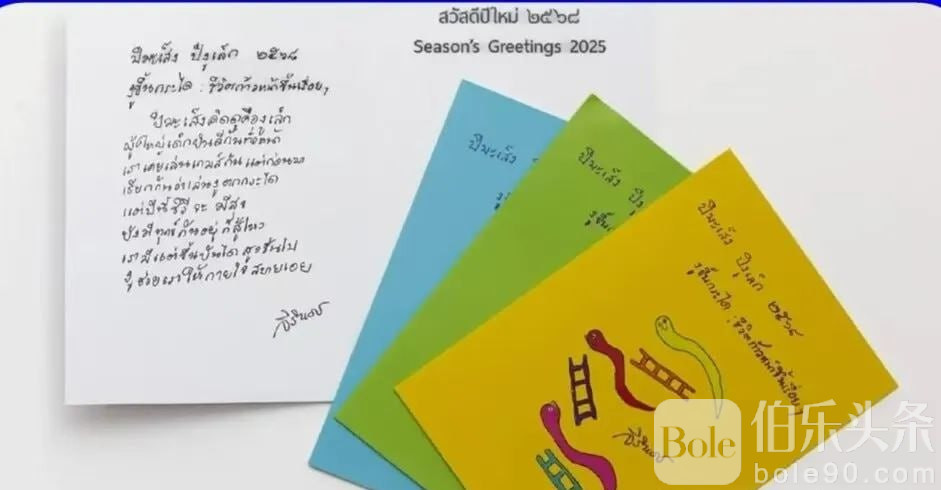 สวัสดีปีใหม่ ๒๕๖๘
Season's Greetings 2025
ปีมะเส็ง ปีงูเล็ก ๒๕๖๘
งูขึ้นกระได : ชีวิตก้าวหน้าขึ้นเรื่อยๆ
ปีมะเส็งคิดดูคืองูเล็ก
ผู้ใหญ่เด็ก
เราเคยเล่นเกมส์กันแต่ก่อนมา
เรียกกันว่าเล่นงูตกกระได
แต่ปีนี้ชีวีจะมีสุข
ยังมีทุกข์กันอยู่ก็สู้ไหว
เรามีแต่ขึ้นบันไดสูงขึ้นไป
งูช่วยเราให้กายใจสบายเอย
สิรินธร
ปีมะเส็ง
ปีมะเส็ง ปีงู
งูขึ้น
ปีมะเส็ง ปีงูเล็ก ๒๕๖๘
งูขึ้นกระได : ชีวิตก้าวหน้าขึ้นเรื่อยๆ
สิรินธร
Bole
伯乐头条
bole90.com